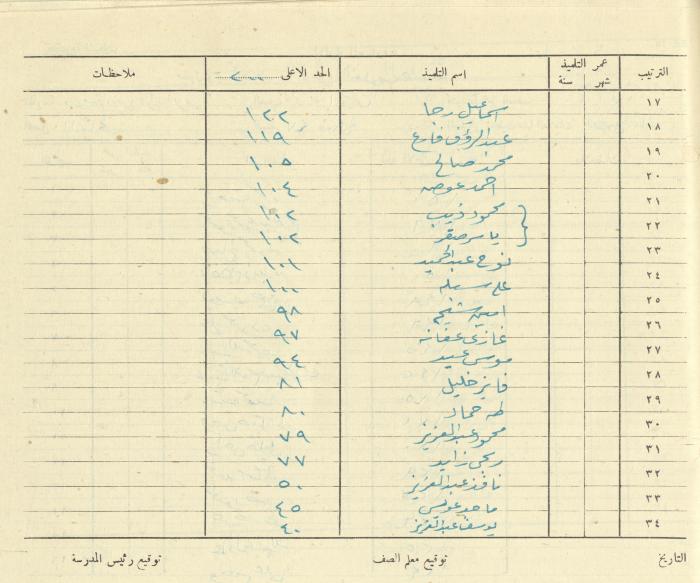 الترتيب عمر التلميذ شهر سنة اسم التلميذ الحد الاعلى ٢٠٠ ملاحظات
١٧ اسماعيل رجا ١٢٢
١٨ عبد الرؤوف فارع ١١٩
١٩ محمد صالح ١٠٥
٢٠ احمد عوض ١٠٤
٢١ محمود ذيب ١٠٢
٢٢ ياسر صقر ١٠٢
٢٣ نوح عبد الحميد ١٠١
٢٤ علي ١٠٠
٢٥ امين ٩٨
٢٦ غازي عفانه ٩٧
٢٧ موسى عيد ٩٤
٢٨ فايز خليل ٨١
٢٩ طه حماد ٨٠
٣٠ محمود عبد العزيز ٧٩
٣١ ربحي زايد ٧٧
٣٢ نافذ عبد العزيز ٥٠
٣٣ ماجد عويس ٤٥
٣٤ يوسف عبد العزيز ٤٠
التاريخ توقيع معلم الصف توقيع رئيس المدرسة